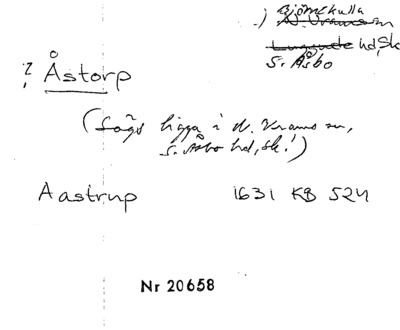 :) Björnekulla
N. Vrams sn
Luggude hd, Sk
S. Åsbo
? Åstorp
(Sägs ligga i N. Vrams sn,
S. Åsbo hd, Sk!)
Aastrup 1631 KB 524
Nr 20658